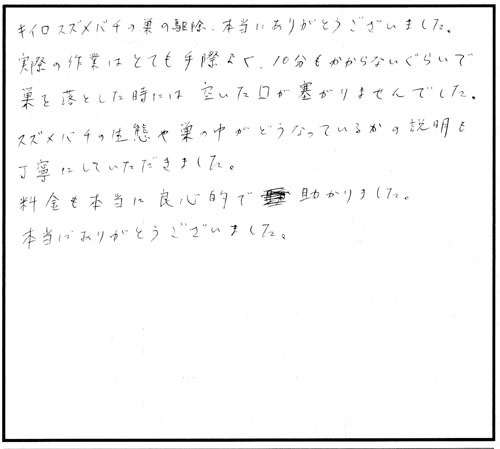 キイロスズメバチの巣の駆除、本当にありがとうございました。
実際の作業はとても手際よく、10分もかからないぐらいで
巣を落とした時には 空いた口が塞がりませんでした。
スズメバチの生態や巣の中がどうなっているかの説明も
丁寧にしていただきました。
料金も本当に良心的で 助かりました。
本当にありがとうございました。